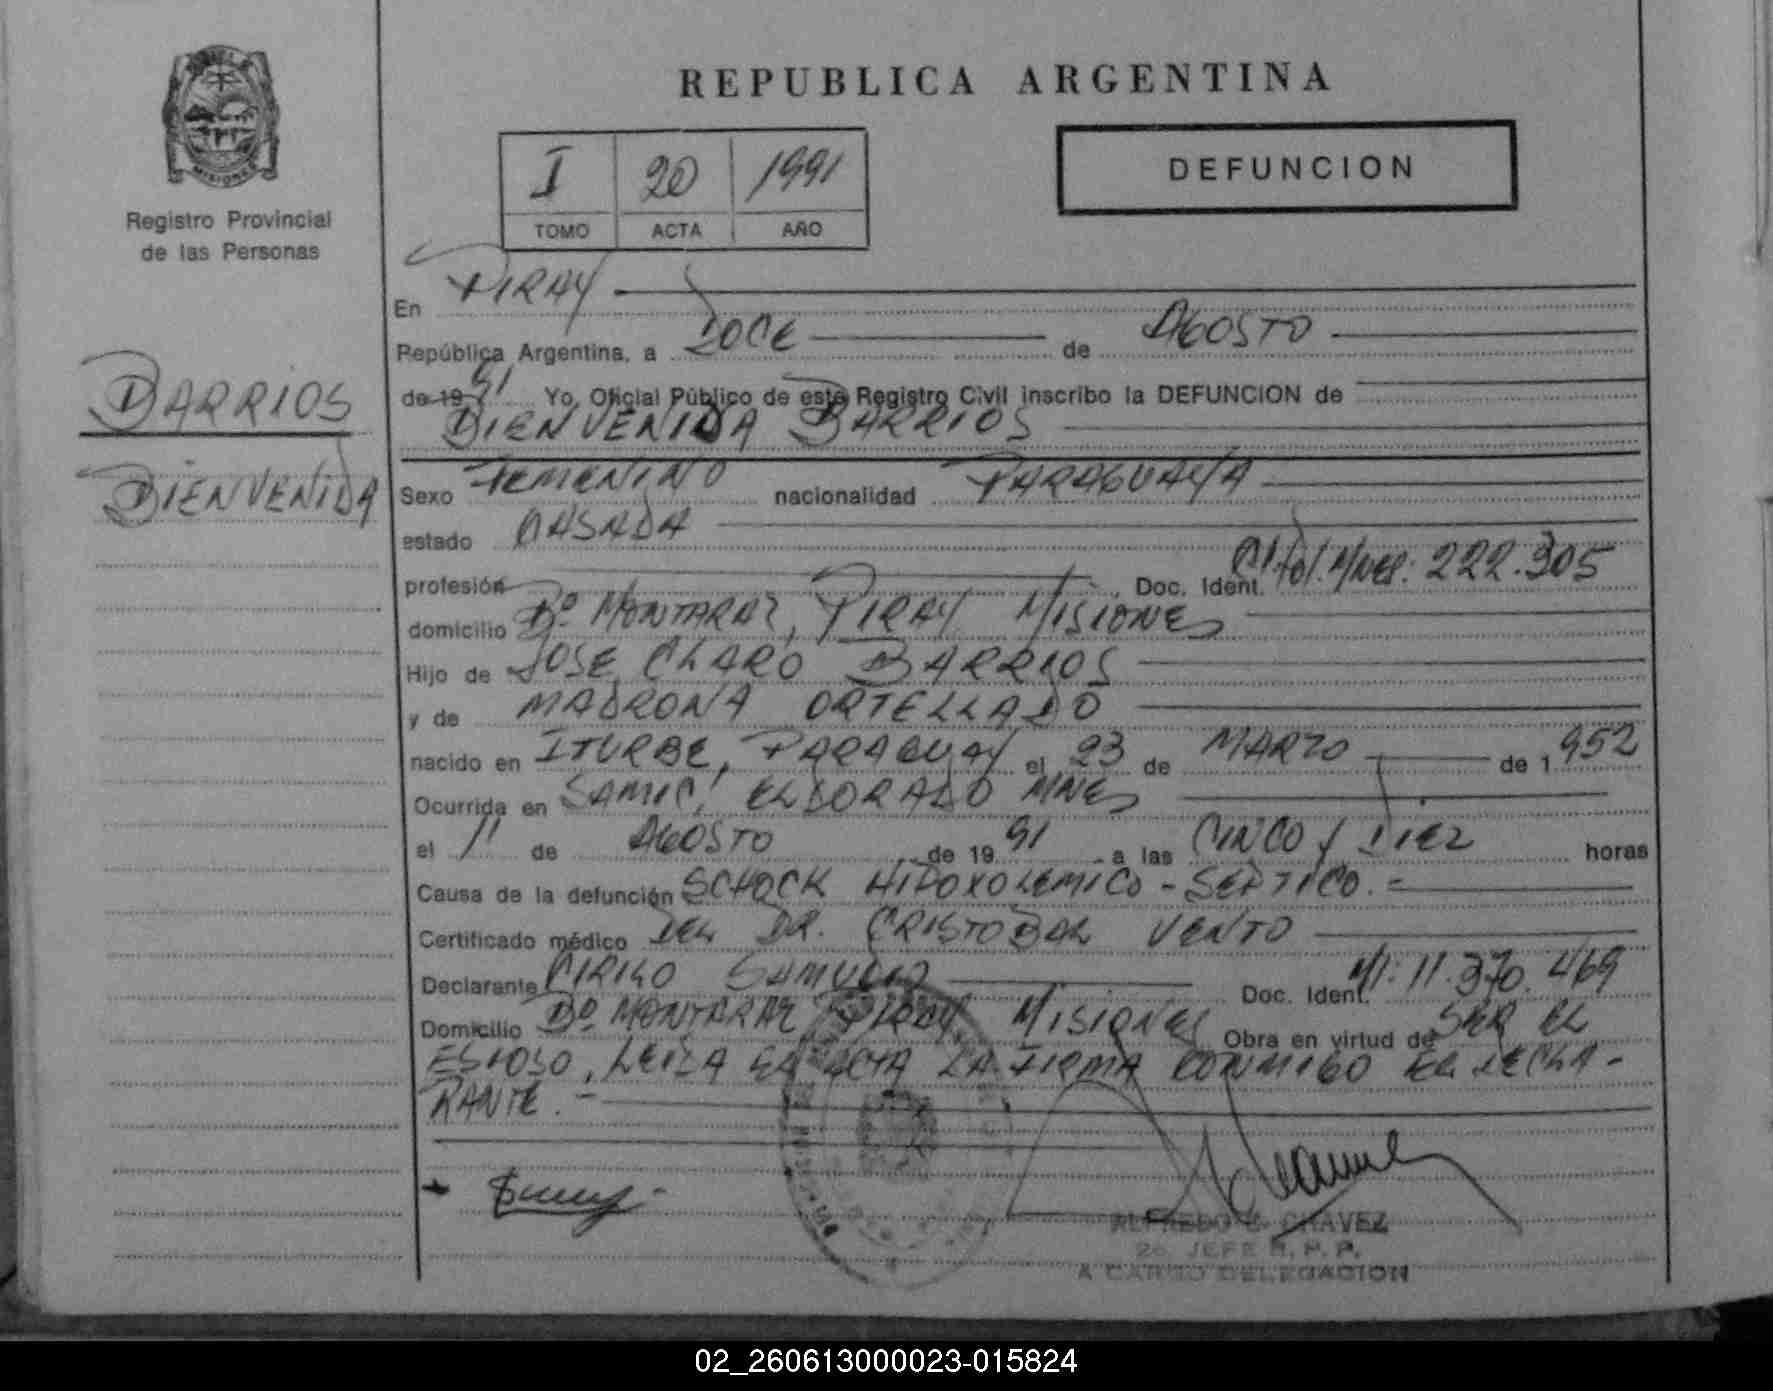 REPUBLICA ARGENTINA
MISIONES
Registro Provincial
de las Personas
I 20 1991
TOMO ACTA AÑO
DEFUNCION
BARRIOS
BIENVENIDA
En PIRAY
República Argentina, a DOCE de AGOSTO
de 1991 Yo, Oficial Público de este Registro Civil inscribo la DEFUNCION de
BIENVENIDA BARRIOS
Sexo FEMENINO nacionalidad PARAGUAYA
estado CASADA
profesión Doc. Ident. Mnes: 222.305
domicilio Bº MONTARAZ, PIRAY MISIONES
Hijo de JOSE CLARO BARRIOS
y de MADRONA ORTELLADO
nacido en ITURBE, PARAGUAY el 23 de MARZO de 1.952
Ocurrida en SAMIC, ELDORADO MNES
el 11 de AGOSTO de 1991 a las CINCO y DIEZ horas
Causa de la defunción SCHOCK HIPOXOLEMICO - SEPTICO.-
Certificado médico DEL DR. CRISTOBAL VENTO
Declarante CIRILO Doc. Ident. MI: 11.370.469
Domicilio Bº MONTARAZ PIRAY MISIONES Obra en virtud de SER EL
ESPOSO, LEIDA EL ACTA LA FIRMA CONMIGO EL DECLA-
RANTE.-
ALFREDO CHAVEZ
2º JEFE R. P. P.
A CARGO DELEGACION
02_260613000023-015824